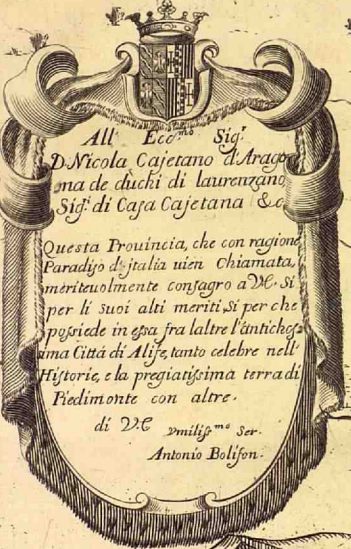 All' Ecc.mo Sig.r
D. Nicola Cajetano d'Arago
na de duchi di laurenzano,
Sig.r di Casa Cajetana &c.
Questa Prouincia, che con ragione
Paradiso d'italia uien Chiamata,
meriteuolmente consagro a V.E. Si
per li Suoi alti meriti, Si per che
possiede in essa fra laltre l'antichiss
ima Città di Alife, tanto celebre nell'
Historie, e la pregiatissima terra di
Piedimonte con altre.
di V.E. Vmiliss.mo Ser.
Antonio Bolifon.